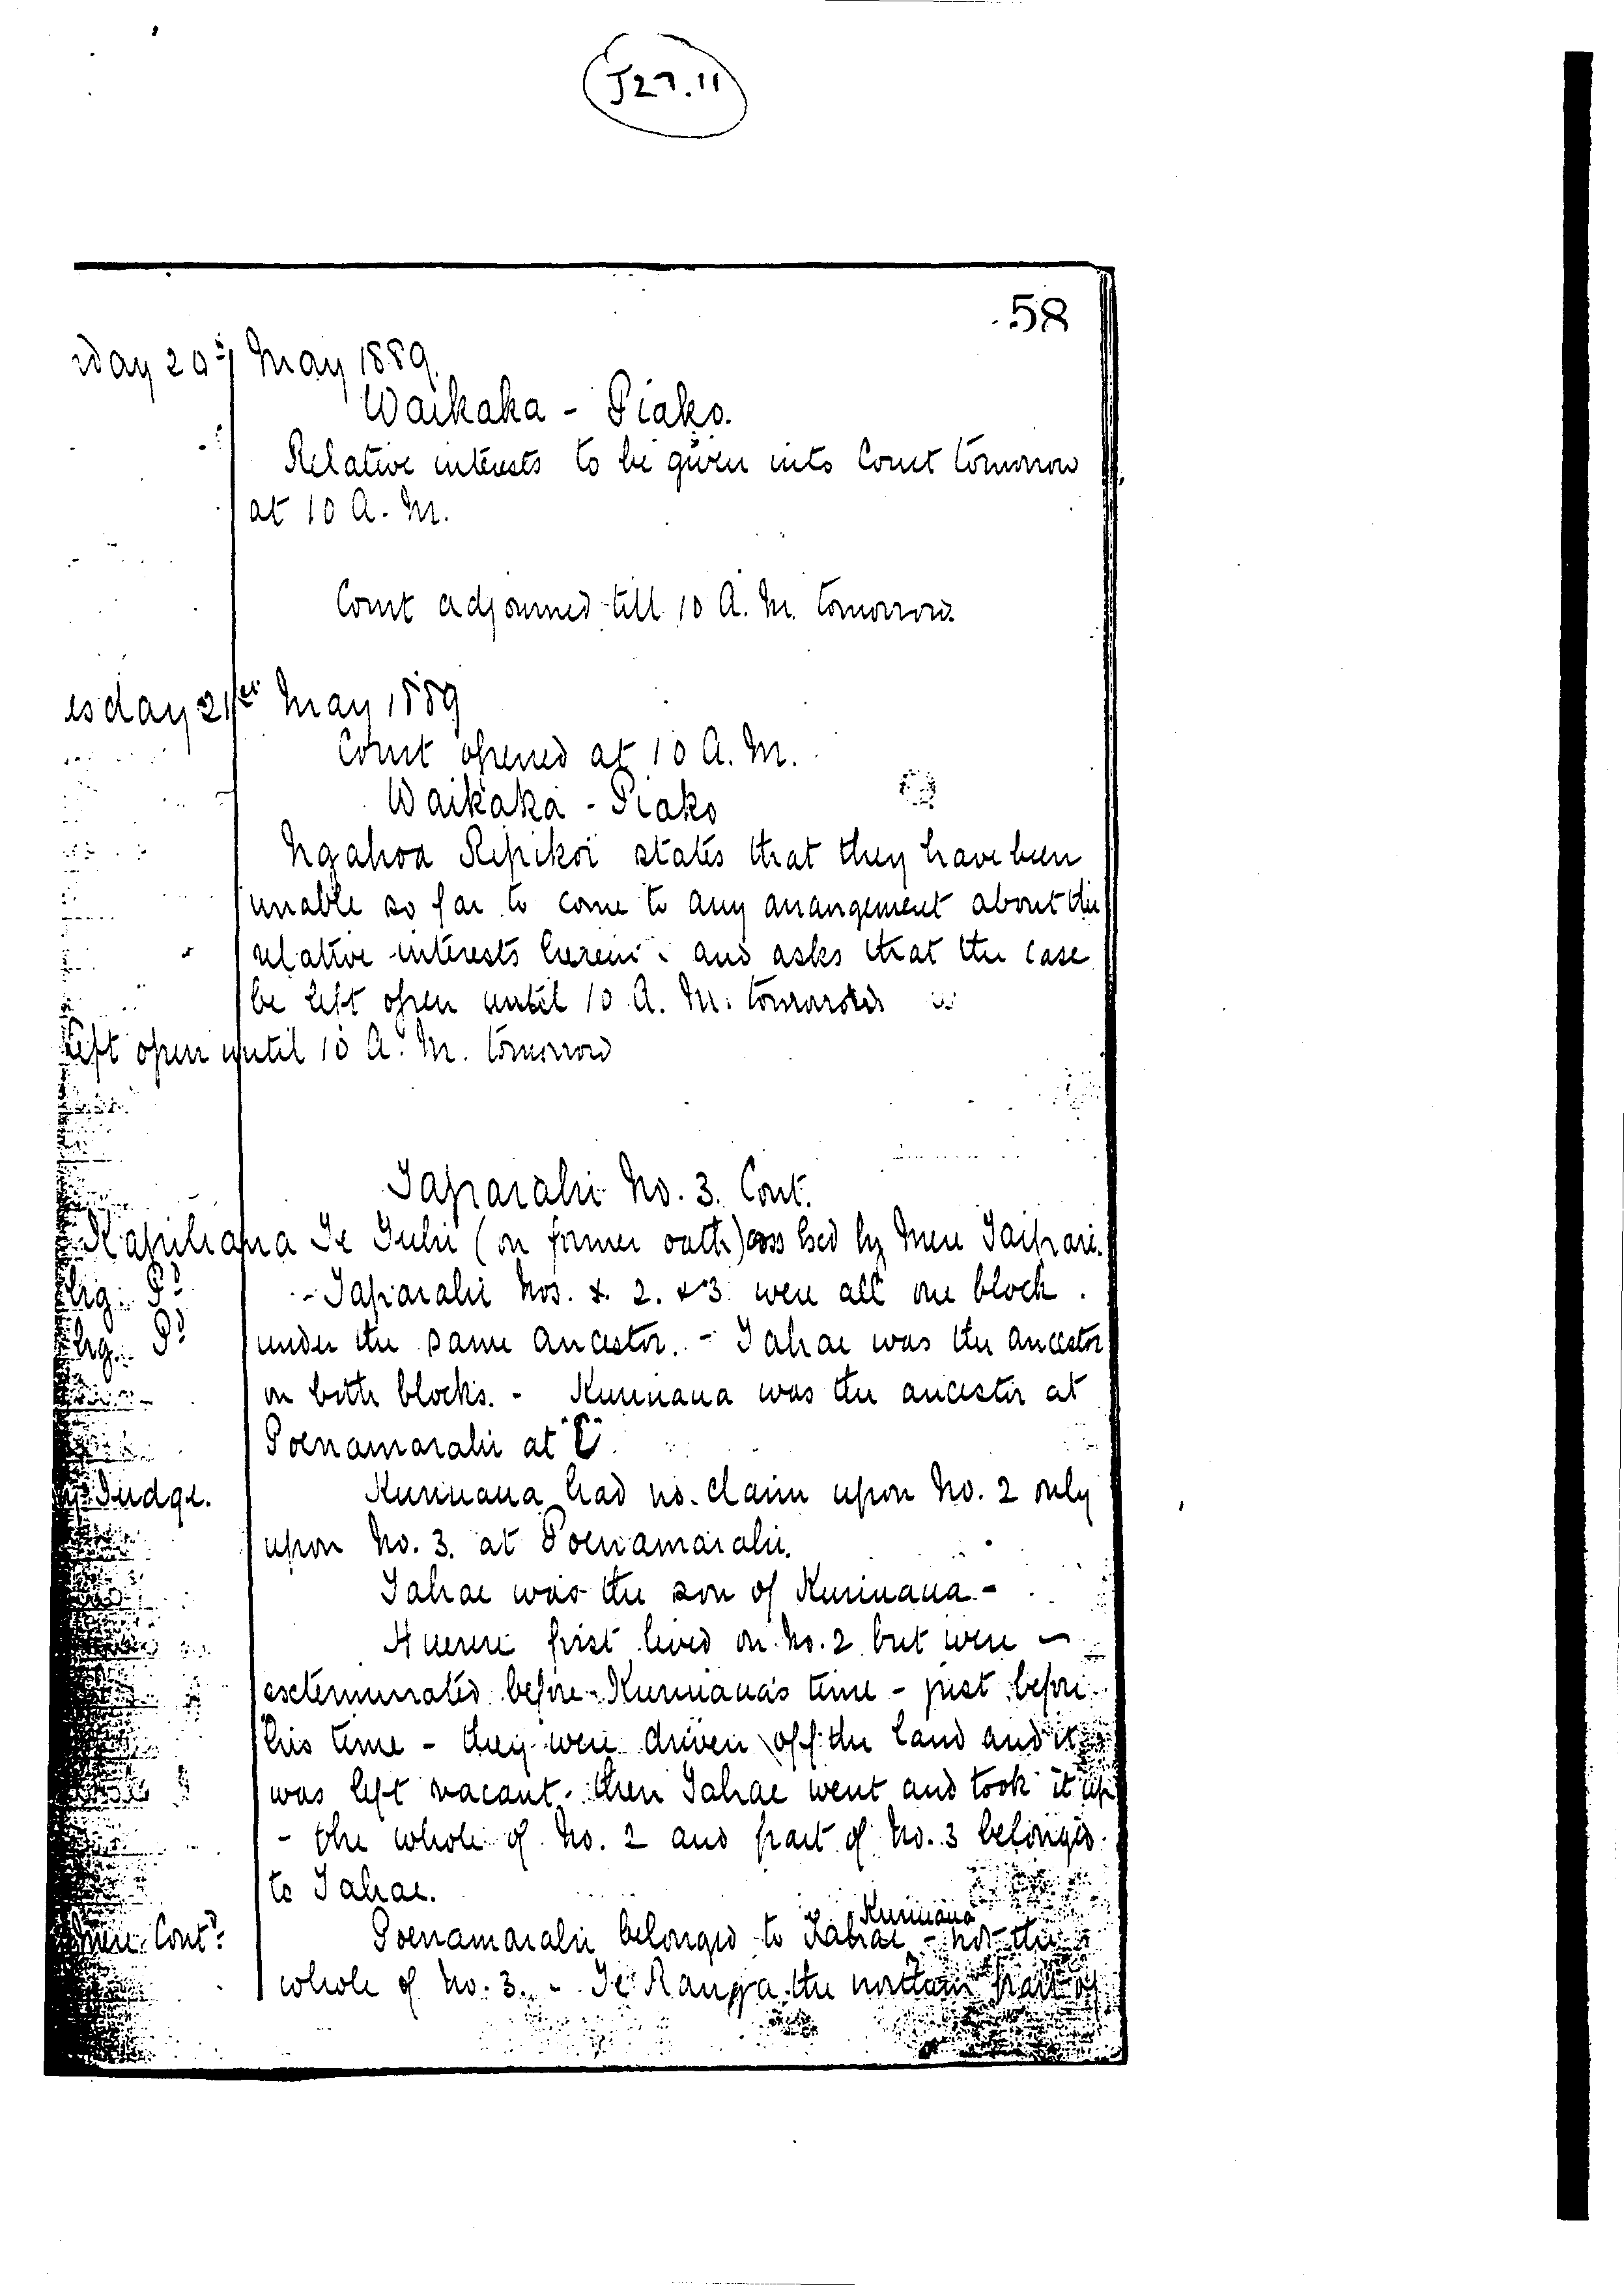 J27.11
58
day 20th May 1889.
Waikaka - Piako.
Relative interests to be given into Court tomorrow
at 10 A.M.
Court adjourned till 10 A.M. tomorrow.
esday 21st May 1889
Court opened at 10 A.M.
Waikaka - Piako
Ngahoa Ripikoi states that they have been
unable so far to come to any arrangement about the
relative interests herein. and asks that the case
be left open until 10 A.M. tomorrow
left open until 10 A.M. tomorrow
Taparahi No. 3. Cont.
Kapihana Te Tuhi (on former oath) cross Exed by Mere Taipari.
- Taparahi Nos. 2. & 3 were all one block.
under the same ancestor. - Tahae was the ancestor
on both blocks. - Kurinaua was the ancestor at
Poenamarahi at C.
Judge. Kurinaua had no claim upon No. 2 only
upon No. 3. at Poenamarahi.
Tahae was the son of Kurinaua -
Huereri first lived on No. 2 but were
exterminated before Kurinaua's time - just before
his time - they were driven off the land and it
was left vacant. then Tahae went and took it up
- the whole of No. 2 and part of No. 3 belonged
to Tahae.
Kurinaua
Cont'd: Poenamarahi belonged to Tahae - not the
whole of No. 3. - Te Ranga the northern part of